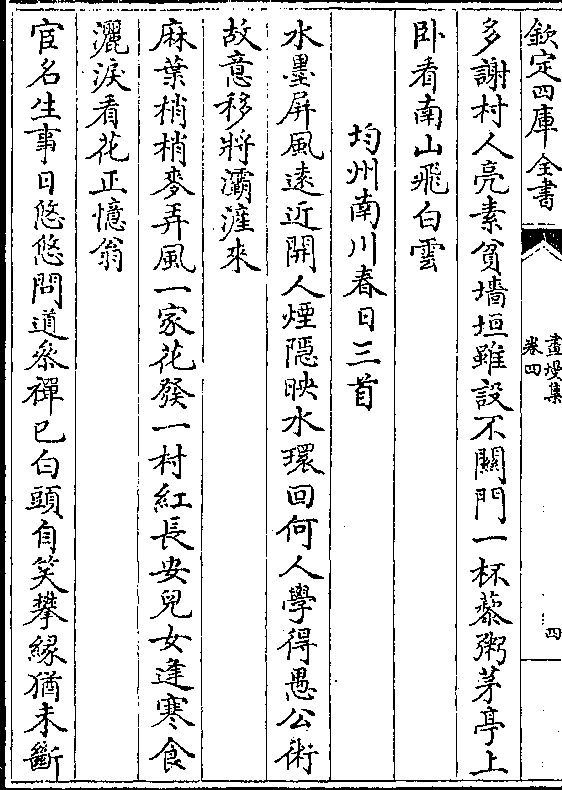 欽定四庫全書
畫墁集
卷四
四
多謝村人亮素貧墻垣雖設不關門一杯藜粥茅亭上
卧看南山飛白雲
均州南川春日三首
水墨屏風逺近開人煙隠映水環回何人學得愚公術
故意移將灞滻來
麻葉梢梢麥弄風一家花發一村紅長安兒女逢寒食
灑淚看花正憶翁
官名生事日悠悠問道叅禪已白頭自笑攀縁猶未斷